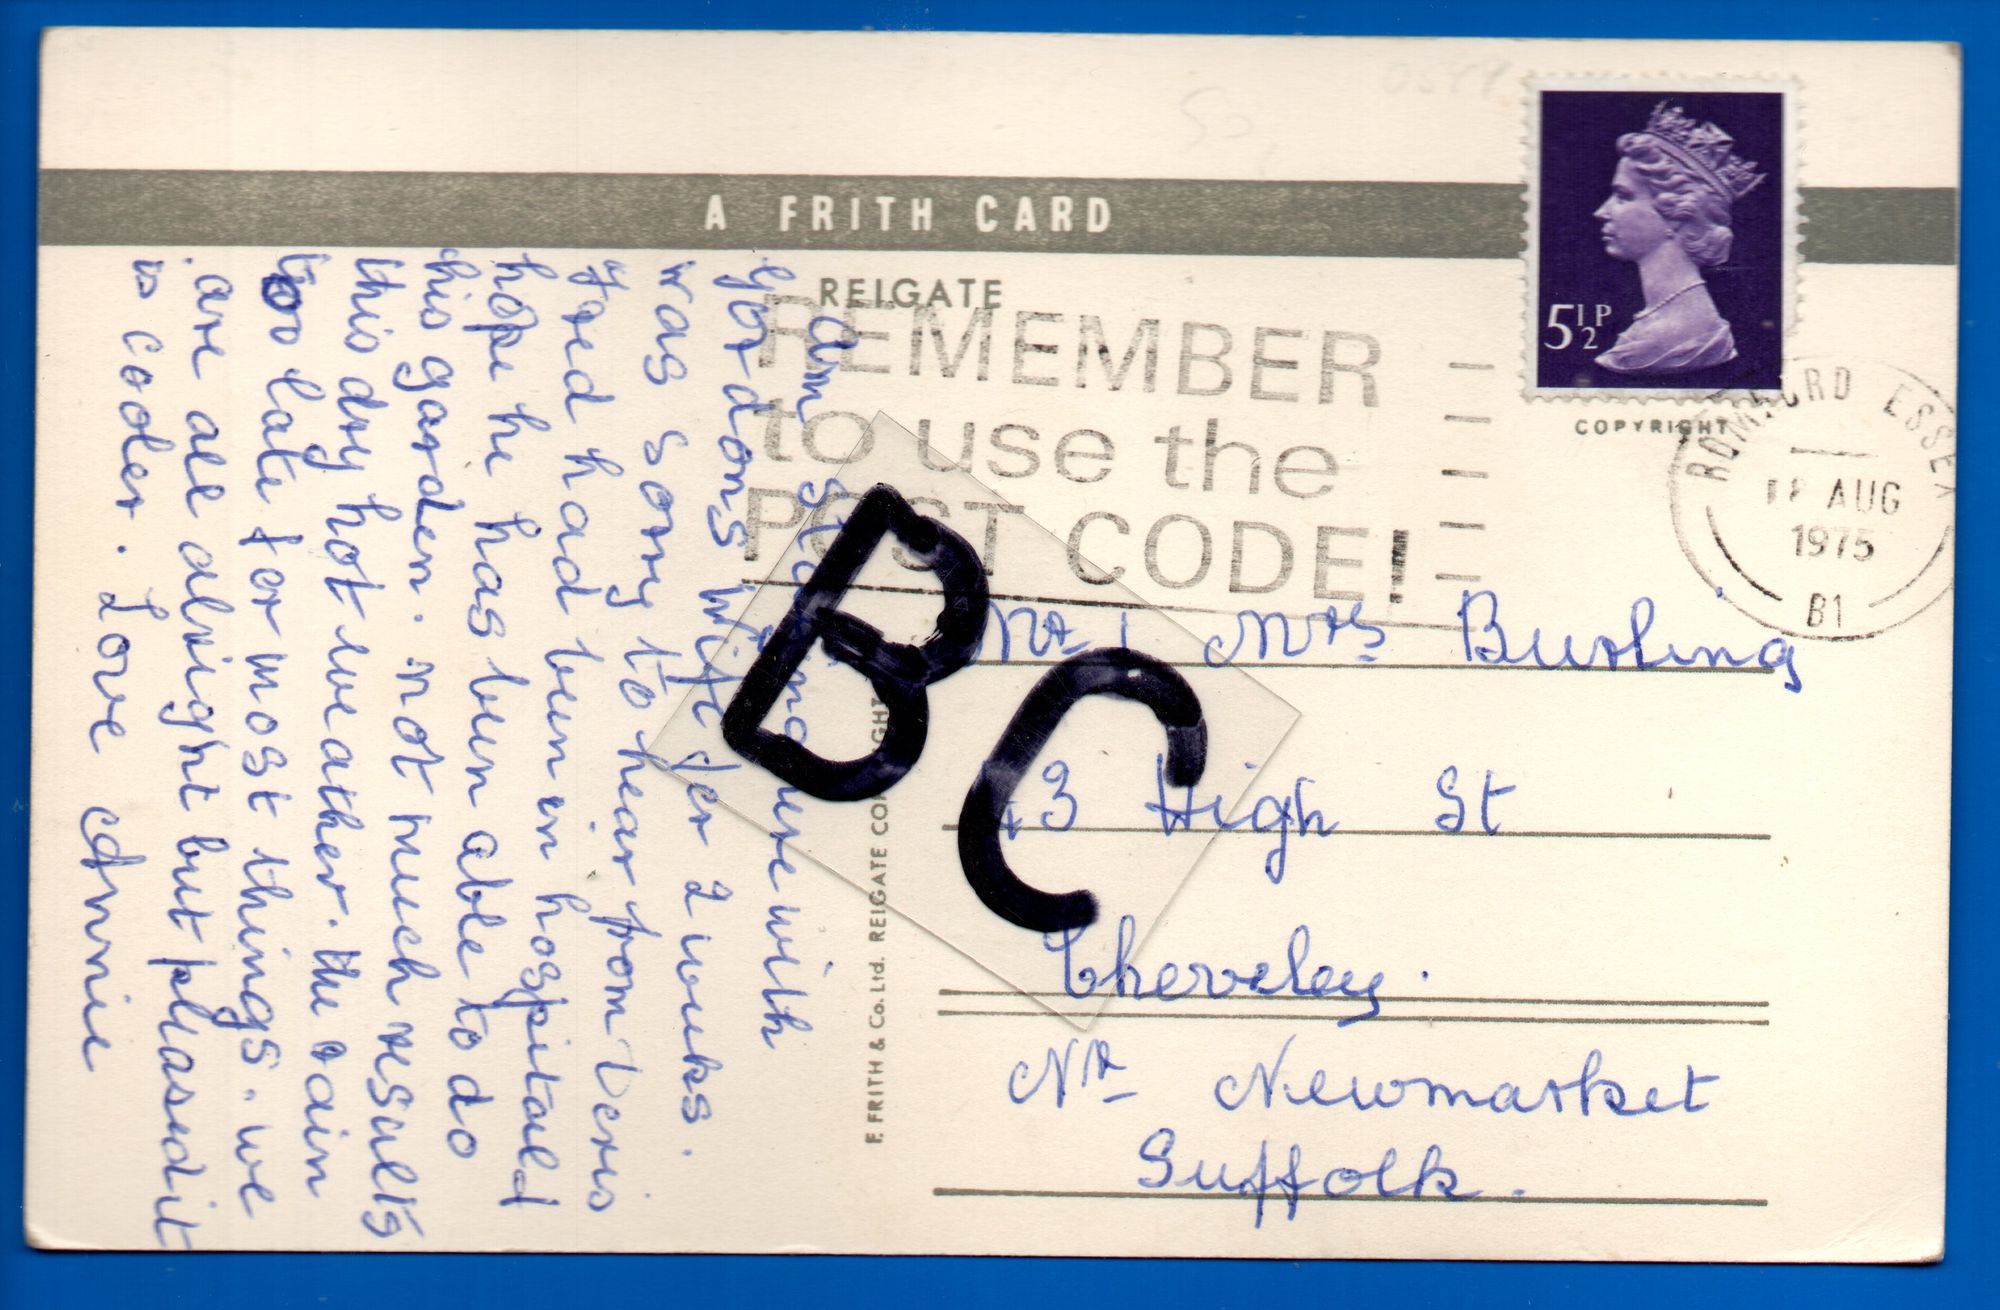 A FRITH CARD
REIGATE
REMEMBER
to use the
POST CODE!
5½P
COPYRIGHT
ROMFORD ESSEX
AUG
1975
B1
BC
am staying here with
Gordons wife for 2 weeks.
was sorry to hear from Veris
Fred had been in hospital &
hope he has been able to do
his garden. not much results
this dry hot weather. the rain
too late for most things. we
are all alright but pleased it
is cooler. Love Annie
F. FRITH & Co. Ltd. REIGATE COPYRIGHT
Mr & Mrs Burling
43 High St
Cheveley.
Nr Newmarket
Suffolk.